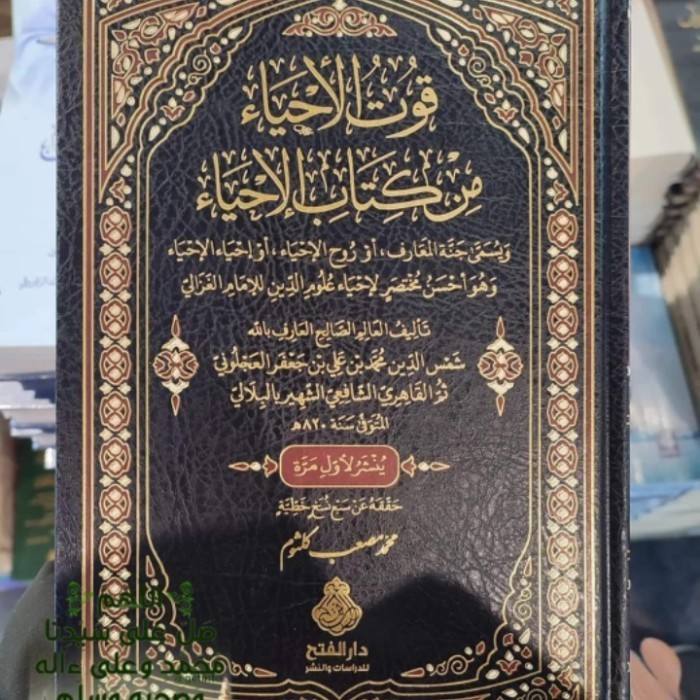 قُوتُ الأَحْيَاءِ
مِنْ كِتَابِ الإِحْيَاءِ
وَيُسَمَّى جَنَّةَ المَعَارِفِ، أَوْ رُوحَ الإِحْيَاءِ، أَوْ إِحْيَاءَ الإِحْيَاءِ
وَهُوَ أَحْسَنُ مُخْتَصَرٍ لِإِحْيَاءِ عُلُومِ الدِّينِ لِلإِمَامِ الغَزَالِيِّ
تَأْلِيفُ العَالِمِ الصَّالِحِ العَارِفِ بِاللهِ
شَمْسِ الدِّينِ مُحَمَّدِ بْنِ عَلِيِّ بْنِ جَعْفَرٍ العَجْلُونِيِّ
ثُمَّ القَاهِرِيِّ الشَّافِعِيِّ الشَّهِيرِ بِالبِلَالِيِّ
المُتَوَفَّى سَنَةَ ٨٢٠هـ
يُنْشَرُ لِأَوَّلِ مَرَّةٍ
حَقَّقَهُ عَنْ سَبْعِ نُسَخٍ خَطِّيَّةٍ
محمد مصعب كلثوم
دار الفتح
للدراسات والنشر
اللهم
صل على سيدنا
محمد وعلى ءاله
وصحبه وسلم